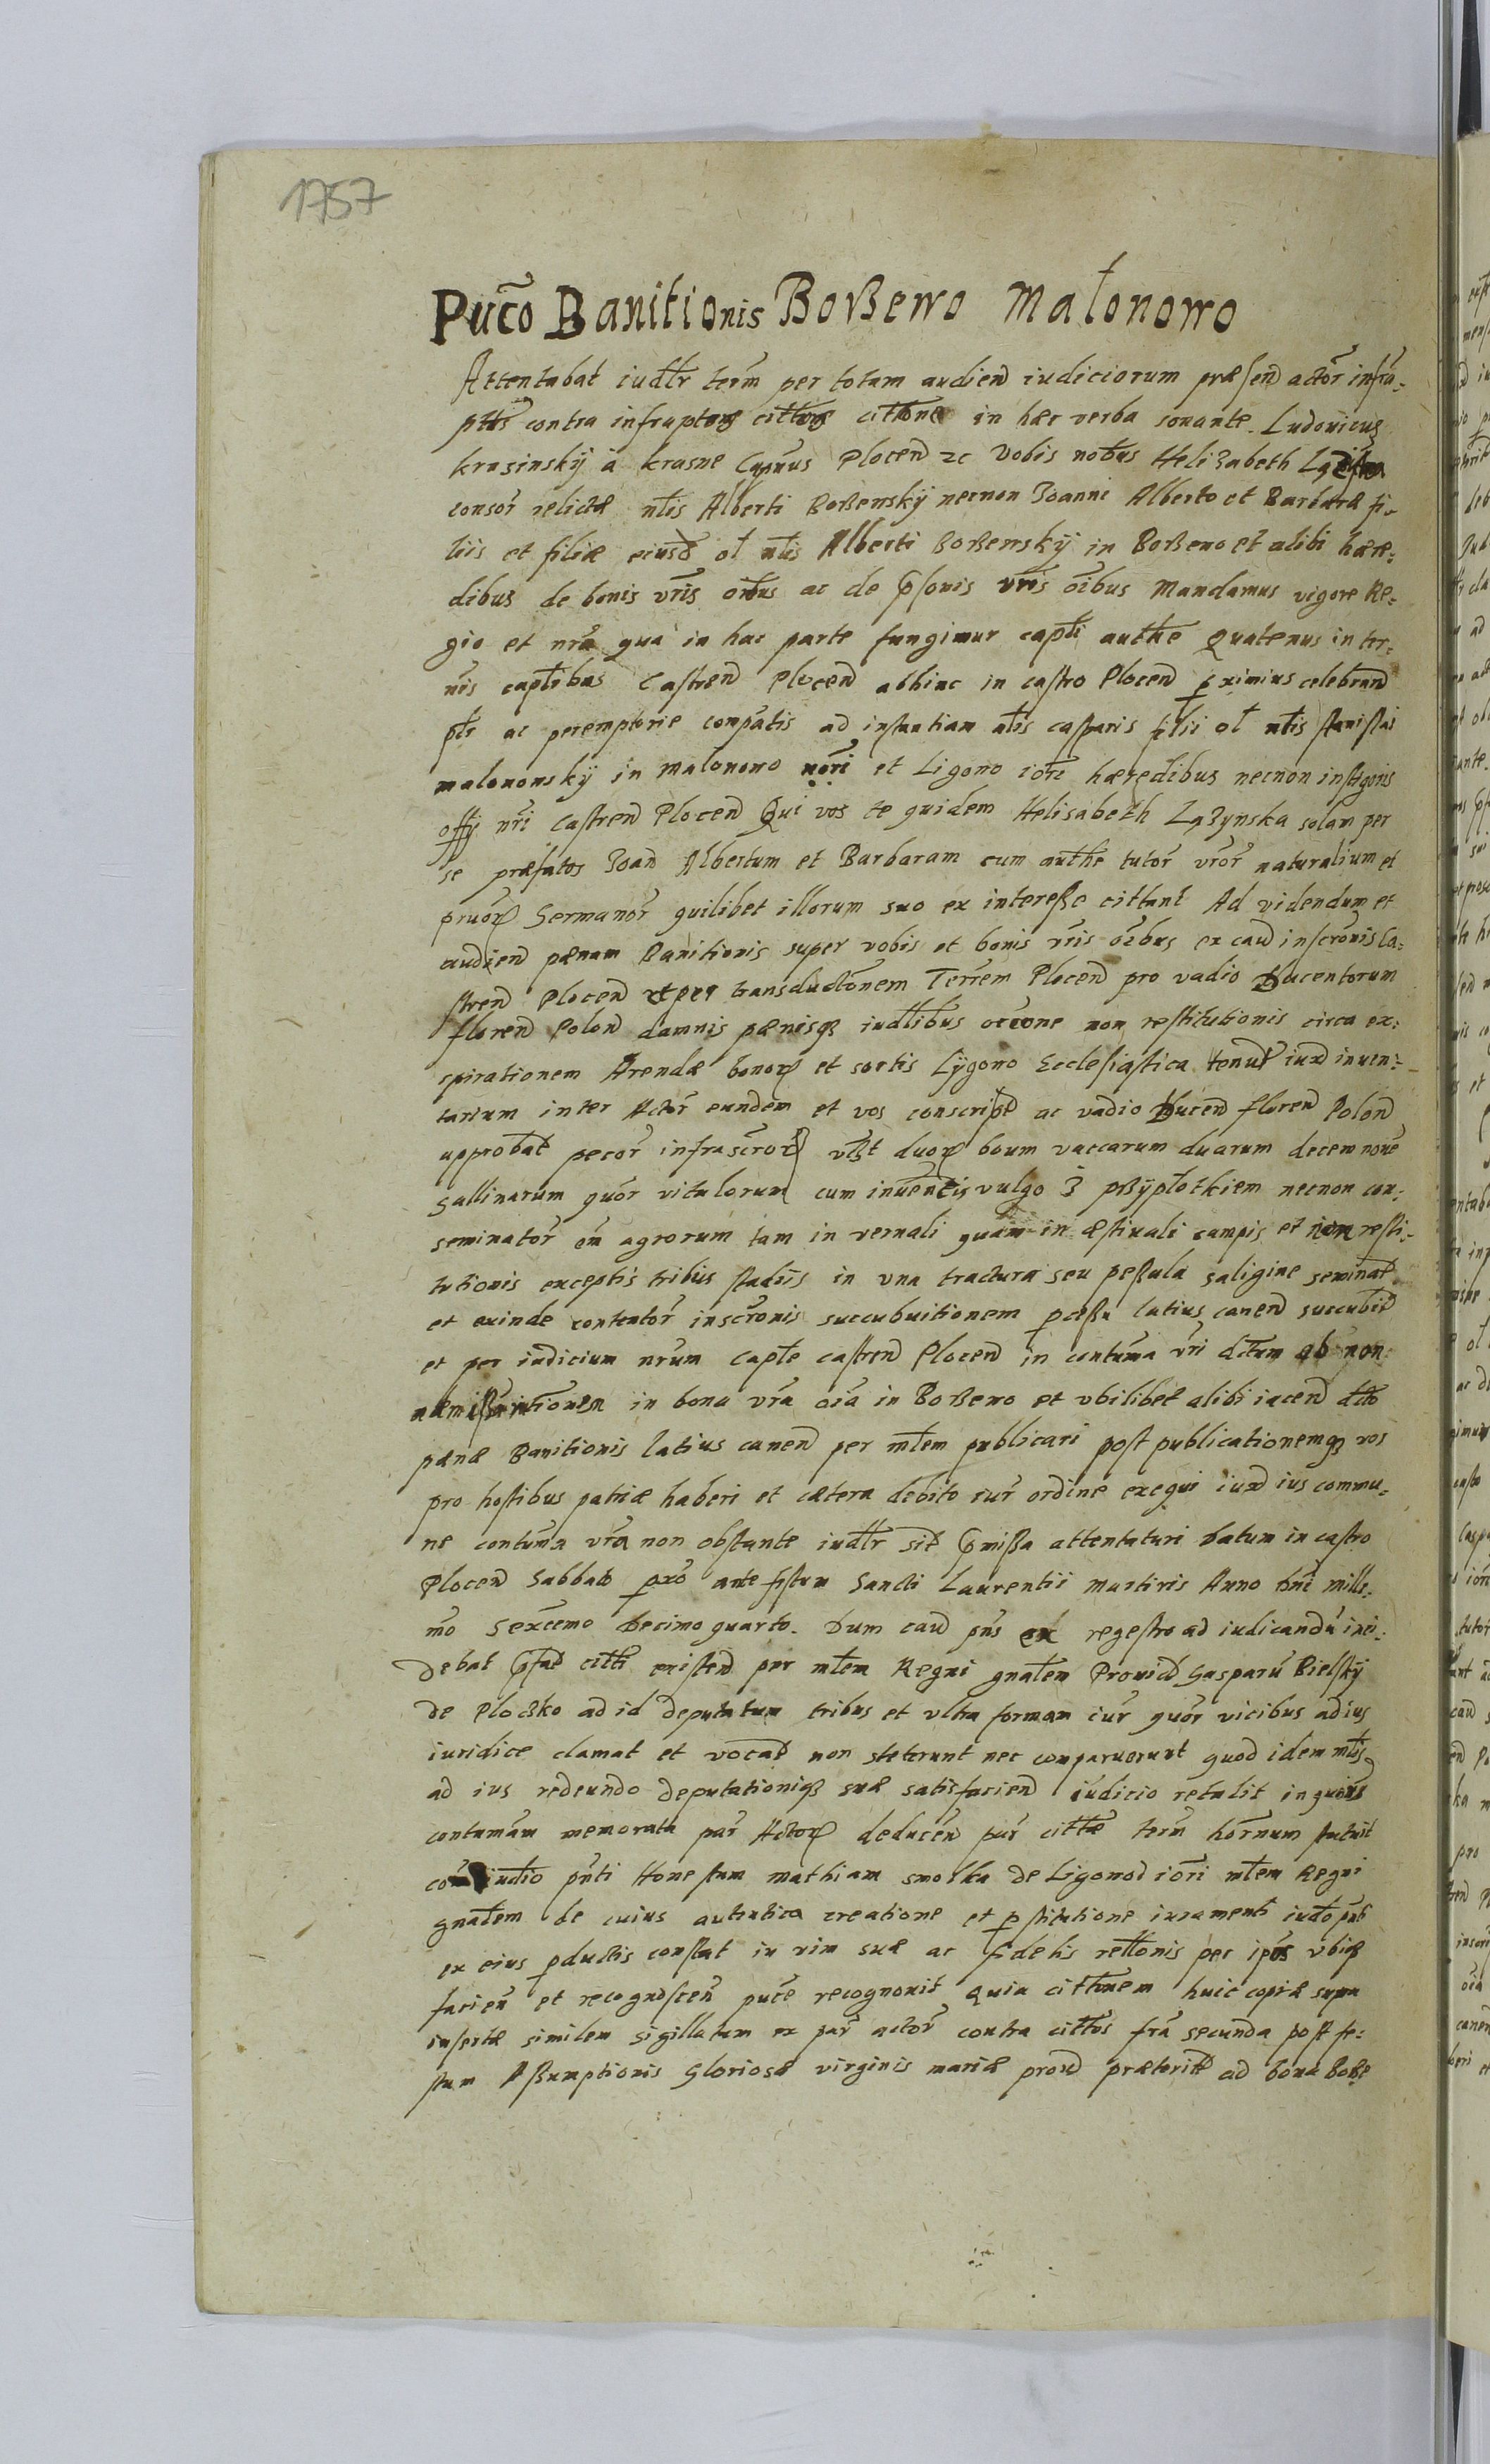 1757
Pu͠co Banitionis Boßewo Małonowo
Attentabat iudłr ter̃m per totam audien̄ iudiciorum præsen̄ actor̃ infra:
pttis contra infraptos citt̃os citt̃one in hæc verba sonante. Ludovicus
krasinskÿ a krasne Cap̃nus Plocen̄ ꝛc Vobis nobus Helizabeth
consor̃ relictæ nlis Alberti Boßewskÿ necnon Joanni Alberto et Barbaræ fi-
liis et filiæ eiusd̄ ol nlis Alberti Boßewskÿ in Boßewo et alibi hære:
dibus de bonis vr̃is oĩbus ac de psonis vr̃is oĩbus Mandamus vigore Re:
gio et nr̃a qua in hac parte fungimur capti authe Quatenus in ter:
nis captlibus Castren̄ Plocen̄ abhinc in castro Plocen̄ pximius celebran̄
ptr ac peremptorie compa̅tis ad instantiam nlis Casparis filii ol nlis stanislai
malonowskÿ in Malonowo nor̃i et Ligowo ior̃i hæredibus necnon instigoris
offÿ nr̃i Castren̄ Plocen̄ Qui vos te quidem Helisabeth Lązynska solam per
se præfatos Joan̄ Albertum et Barbaram cum authe tutor̃ vr̃or̃ naturalium et
pruorꝝ Germanor̃ quilibet illorum suo ex interesse cittant Ad videndum et
audien̄ pænam Banitionis super vobis et bonis vr̃is oĩbus ex cau̅ inscr̃onis Ca:
stren̄ Plocen̄ et per transductõnem Terr̃em Plocen̄ pro vadio Ducentorum
floren̄ Polon̄ damnis pænisqꝫ iudłibus occone non restitutionis circa ex:
spirationem Arendæ bonorꝝ et sortis Lÿgowo Ecclesiastica tenut̄ iux̄ inven:
tarium inter Actor̃ eundem et vos conscript̄ ac vadio Ducen̄ floren̄ Polon̄
approbat pecor̃ infrascrorꝝ vꝫt duorꝝ boum vaccarum duarum decem nove
Gallinarum quor̃ vitulorum cum inventis vulgo z pßÿpłotkiem necnon con:
seminator̃ oñ agrorum tam in vernali quam in æstivali campis et non resti:
tutionis exceptis tribus stadiis in vna tractura seu peßula saligine seminat̄
et exinde contentor̃ inscr̃onis succubuitionem pceßu latius canen̄ succubit̄
et per iudicium nr̃um Capłe castren̄ Plocen̄ in contuma vr̃i dctum ob non
admißam intr̃onem in bona vr̃a oĩa in Boßewo et vbilibet alibi iacen̄ dcto
pænæ Banitionis latius canen̄ per młem publicari post publicationemqꝫ vos
pro hostibus patriæ haberi et cætera debito iur̃ ordine exequi iux̄ ius commu:
ne contuma vr̃a non obstante iudłr sit̄ pmißa attentaturi Datum in castro
Plocen̄ Sabbato pxo ante festum Sancti Laurentii martiris Anno Dni mille:
mo Sexcemo Decimo quarto. Dum cau̅ pñs ex regestro ad iudicandũ inci:
debat pfat̄ citti existen̄ per młem Regni gnałem Provid̄ Gasparũ Bielskÿ
de Ploczko ad id deputatum tribus et vltra formam iur̃ quor̃ vicibus ad ius
iuridice clamat et vocat̄ non steterunt nec comparuerunt quod idem młis
ad ius redeundo deputationiqꝫ suæ satisfacien̄ iudicio retulit in quor̃
contumam memorata par̃ Actorꝝ deducen̄ par̃ cittæ term̃ hor̃num statuit
cor̃ iudio pñti Honestum mathiam smolka de Ligowo d iori młem Regni
gnałem de cuius autentica creatione et pstitutione iuramenti iudo pñti
ex eius pductis constat in vim suæ ac fidelis relłonis per ipũs vbiqꝫ
facien̄ et recognoscen̄ puce recognovit Quia cittonem huic copiæ supra
insertæ similem sigillatam ex par̃ actor̃ contra cittos fr̃a secunda post fe:
stum Assumptionis Gloriosæ virginis mariæ prox̄ præterit̄ ad bona Boße